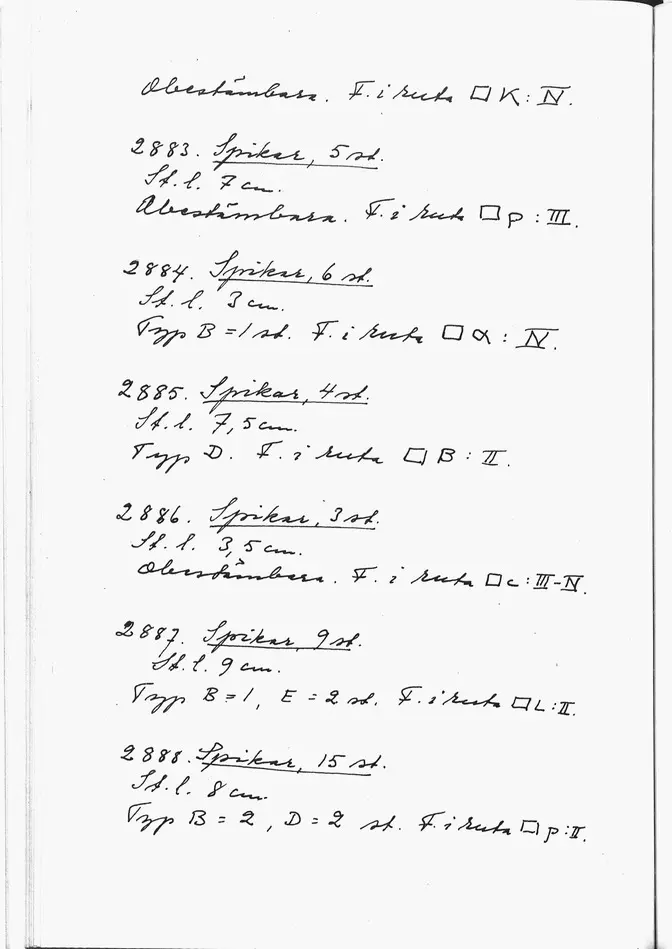 Obestämbara. F. i ruta □ K: IV.
2883. Spikar, 5 st.
St. l. 7 cm.
Obestämbara. F. i ruta □ p : III.
2884. Spikar, 6 st.
St. l. 3 cm.
Typ B = 1 st. F. i ruta □ α : IV.
2885. Spikar, 4 st.
St. l. 7,5 cm.
Typ D. F. i ruta □ B : II.
2886. Spikar, 3 st.
St. l. 3,5 cm.
Obestämbara. F. i ruta □ c : III-IV.
2887. Spikar, 9 st.
St. l. 9 cm.
Typ B = 1, E = 2 st. F. i ruta □ L : II.
2888. Spikar, 15 st.
St. l. 8 cm.
Typ B = 2, D = 2 st. F. i ruta □ p : II.